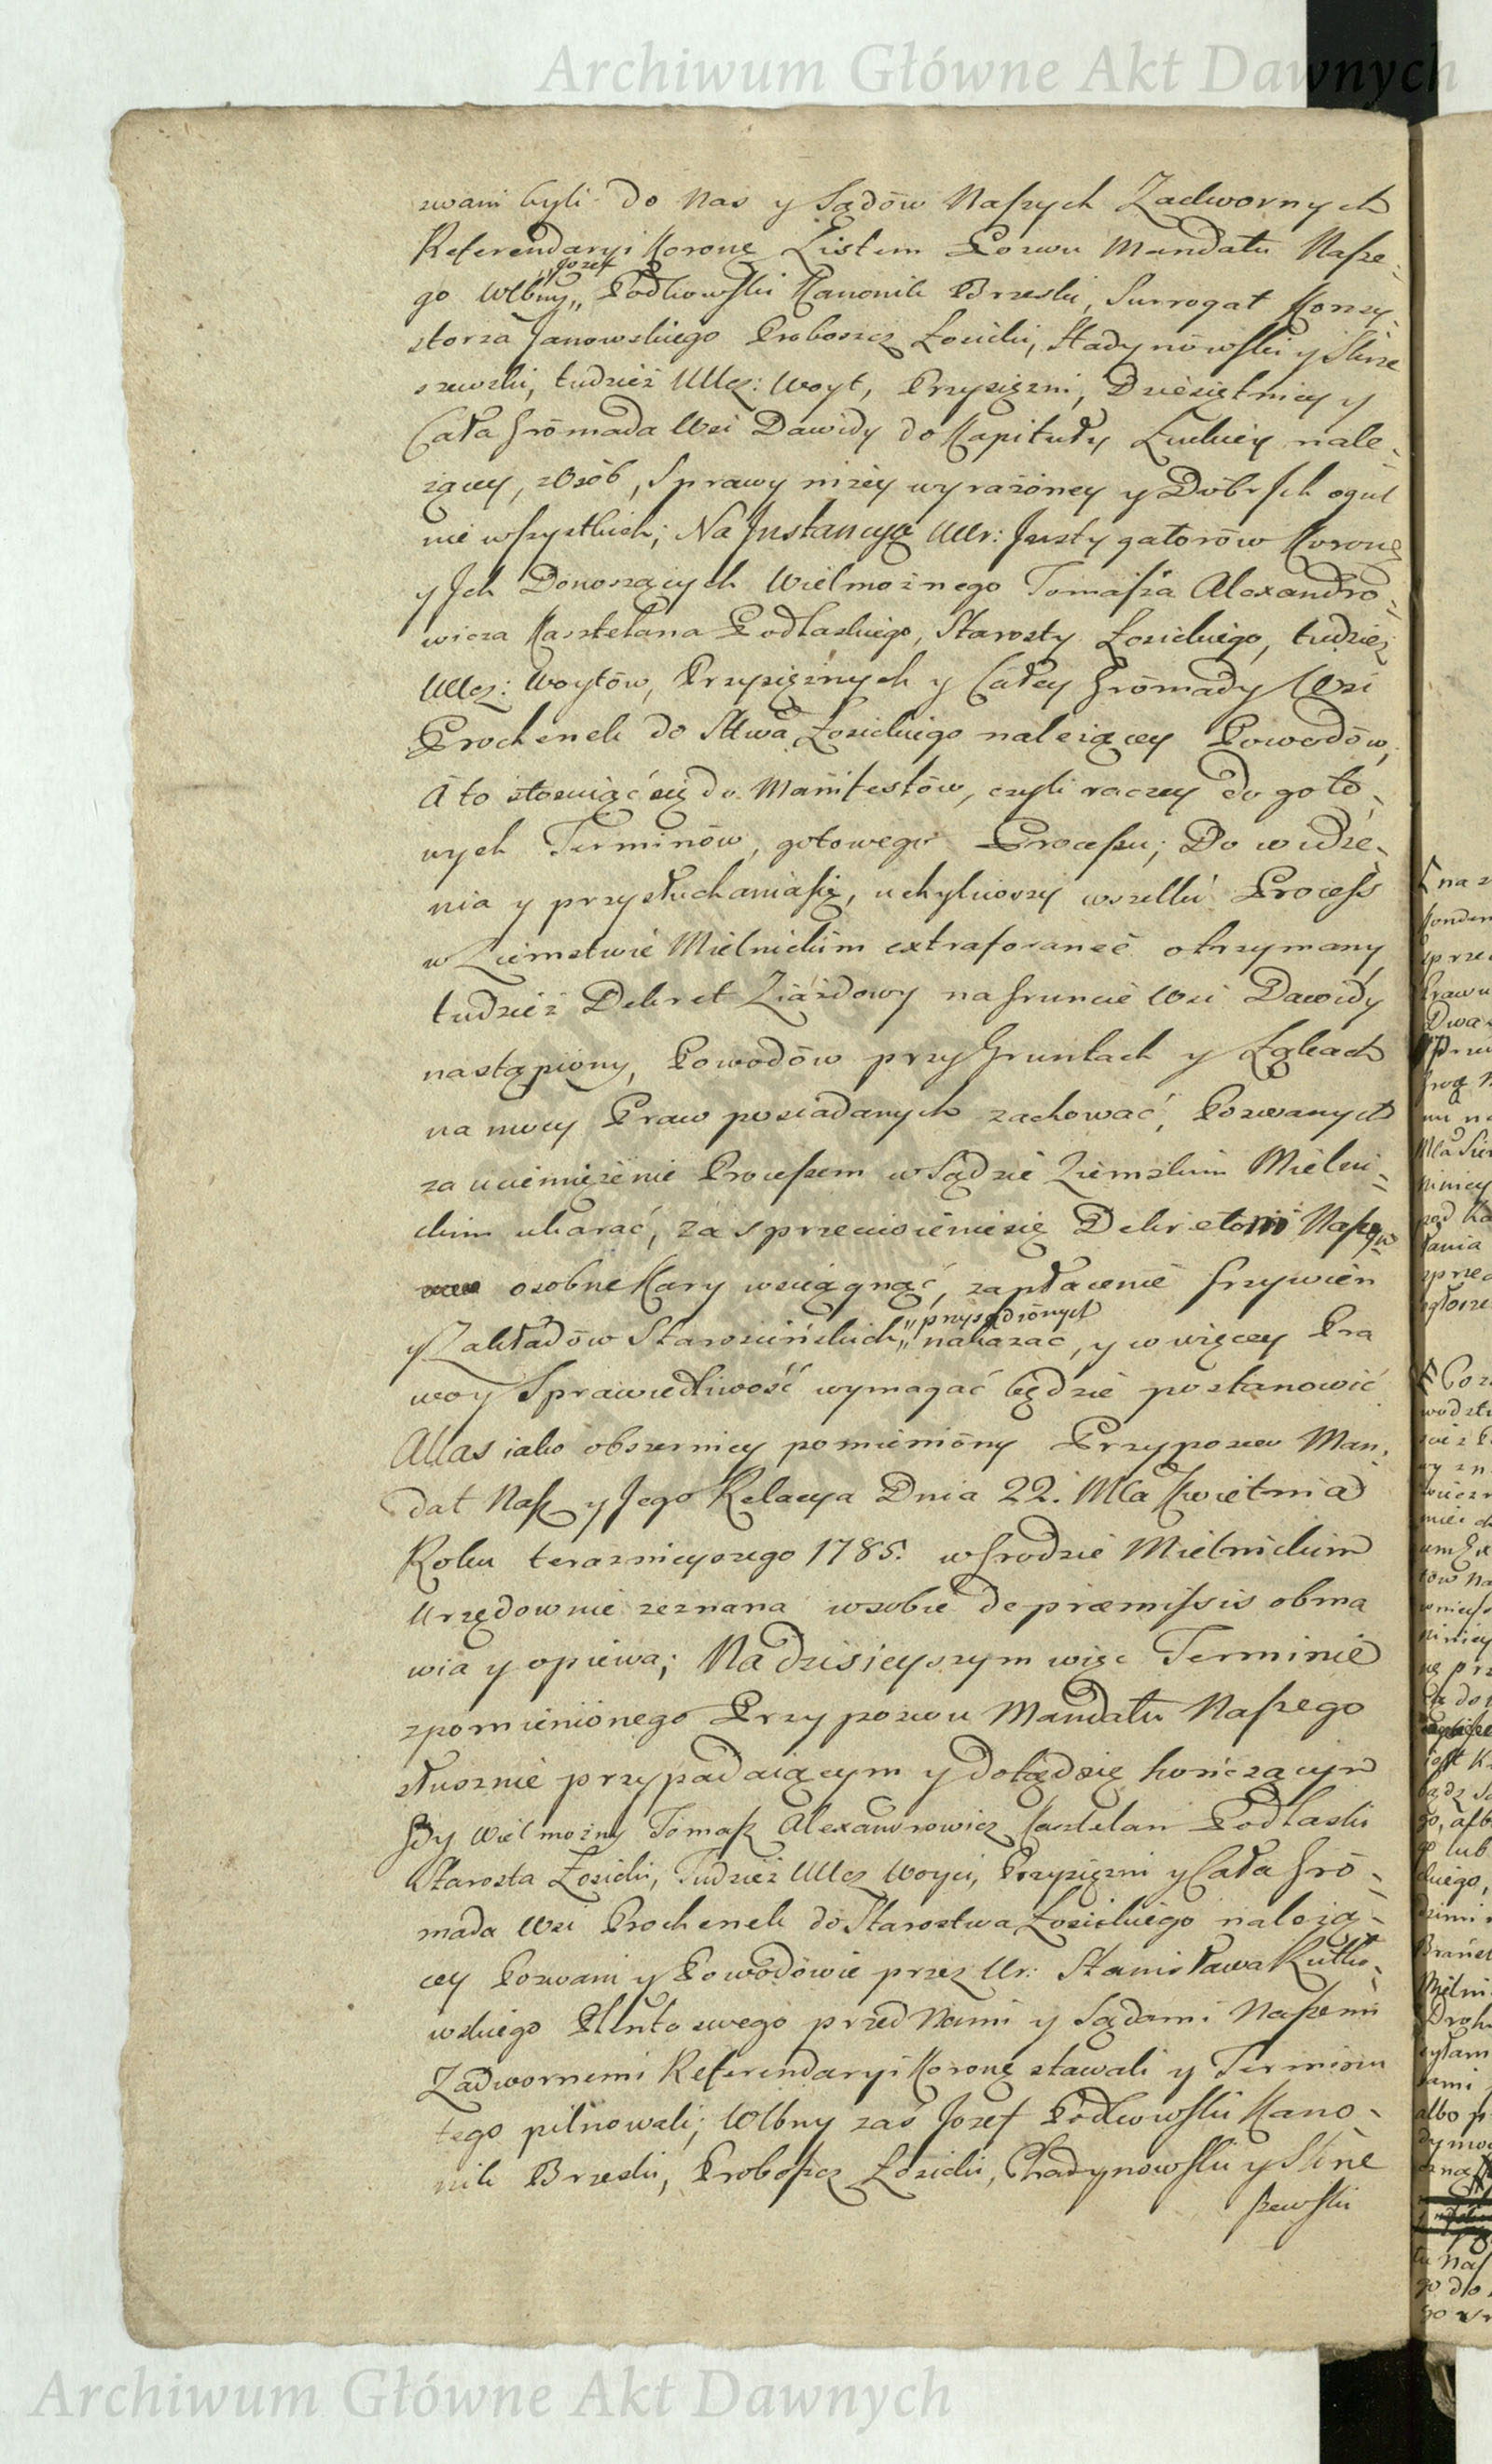 Archiwum Główne Akt Dawnych
zwani byli do Nas y Sądów Naszych Zadwornych
Referendaryi Koronę Listem Pozwu Mandatu Nasze-
go Wlbny „Jozef„ Podkowski Kanonik Brzeski, Surrogat Konsy-
storza Janowskiego Proboszcz Łosicki, Hadynówski y Skrze
szewski, tudzież Ucz: Woyt, Przysięzni, Dziesiętnicy y
Cała Grömada Wsi Dawidy do Kapituły Łuckiey nale-
zącey, z Osób, Sprawy niżey wyrażóney y Dóbr Jch ogul
nie wszystkich; Na Jnstancyą Ur: Jnstygatorów Koronę
y Jch Donoszących Wielmożnego Tomasza Alexandro-
wicza Kasztelana Podlaskiego, Starosty Łosickiego, tudzież
Ucz: Woytów, Przysięznych y Całey Grómady Wsi
Prochenek do Sttwa Łosickiego należącey Powodów,
A to stosuiąć się do Manifestów, czyli raczey do goto-
wych Terminów, gotowego Processu; Do widze-
nia y przysłuchania się, uchyliwszy wszelki Process
w Ziemstwie Mielnickim extraforanee otrzymany
tudzież Dekret Ziazdowy na Gruncie Wsi Dawidy
nastąpiony, Powodów przy Gruntach y Łąkach
na mocy Praw posiadanych zachować, Pozwanych
za uciemiężenie Processem w Sądzie Ziemskim Mielni-
ckim ukarać, za sprzeciwienie się Dekretom Naszym
osobne Kary wsciągnąć, zapłacenie Grzywien
y Zakładów Starościńskich „przysądzónych„ nakazać, y co więcey Pra
woy Sprawiedliwość wymagać będzie postanowić
Allas iako obszerniey pomienióny Przypozew Man-
dat Nasz y Jego Relacya Dnia 22. Mca Kwietnia
Roku teraznieyszego 1785. w Grodzie Mielnickim
Urzędownie zeznana w sobie de præmissis obma
wia y opiewa; Na dzisieyszym więc Terminie
z pomienionego Przypozwu Mandatu Naszego
słusznie przypadaiącym y dotąd się kończącym
Gdy Wielmożny Tomasz Alexandrowicz Kasztelan Podlaski
Starosta Łosicki, Tudzież Ucz Woyci, Przysięzni y Cała Gró-
mada Wsi Prochenek do Starostwa Łosickiego należą-
cey Pozwani y Powodowie przez Ur: Stanisława Rutko-
wskiego Plnta swego przed Nami y Sądami Naszemi
Zadwornemi Referendaryi Koronę stawali y Terminu
tego pilnowali; Wlbny zaś Jozef Podkowski Kano-
nik Brzeski, Proboszcz Łosicki, Chadynowski y Skrze
szewski
Archiwum Główne Akt Dawnych